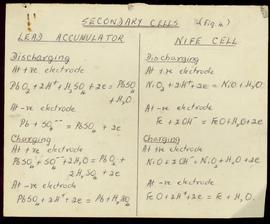 SECONDARY CELLS (Fig. 4)
LEAD ACCUMULATOR
Discharging
At +ve electrode
PbO₂ + 2H⁺ + H₂SO₄ + 2e = PbSO₄
+ H₂O
At -ve electrode
Pb + SO₄⁻⁻ = PbSO₄ + 2e
Charging
At +ve electrode
PbSO₄ + SO₄⁻⁻ + 2H₂O = PbO₂ +
2H₂SO₄ + 2e
At -ve electrode
PbSO₄ + 2H⁺ + 2e = Pb + H₂SO₄
NIFE CELL
Discharging
At +ve electrode
NiO₂ + 2H⁺ + 2e = NiO + H₂O.
At -ve electrode
Fe + 2OH⁻ = FeO + H₂O + 2e
Charging
At +ve electrode
NiO + 2OH⁻ = NiO₂ + H₂O + 2e
At -ve electrode
FeO + 2H⁺ + 2e = Fe + H₂O.